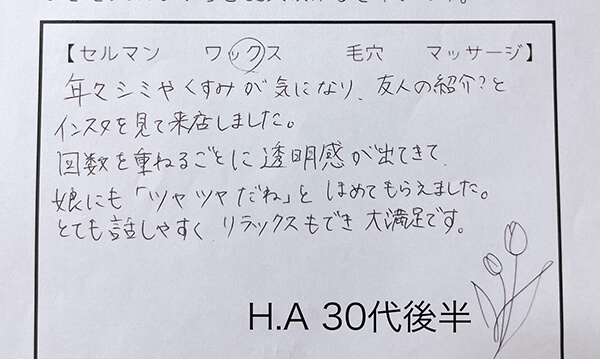 【セルマン　ワックス　毛穴　マッサージ】
年々シミやくすみが気になり、友人の紹介?と
インスタを見て来店しました。
回数を重ねるごとに透明感が出てきて
娘にも「ツヤツヤだね」とほめてもらえました。
とても話しやすくリラックスもでき大満足です。
H.A 30代後半